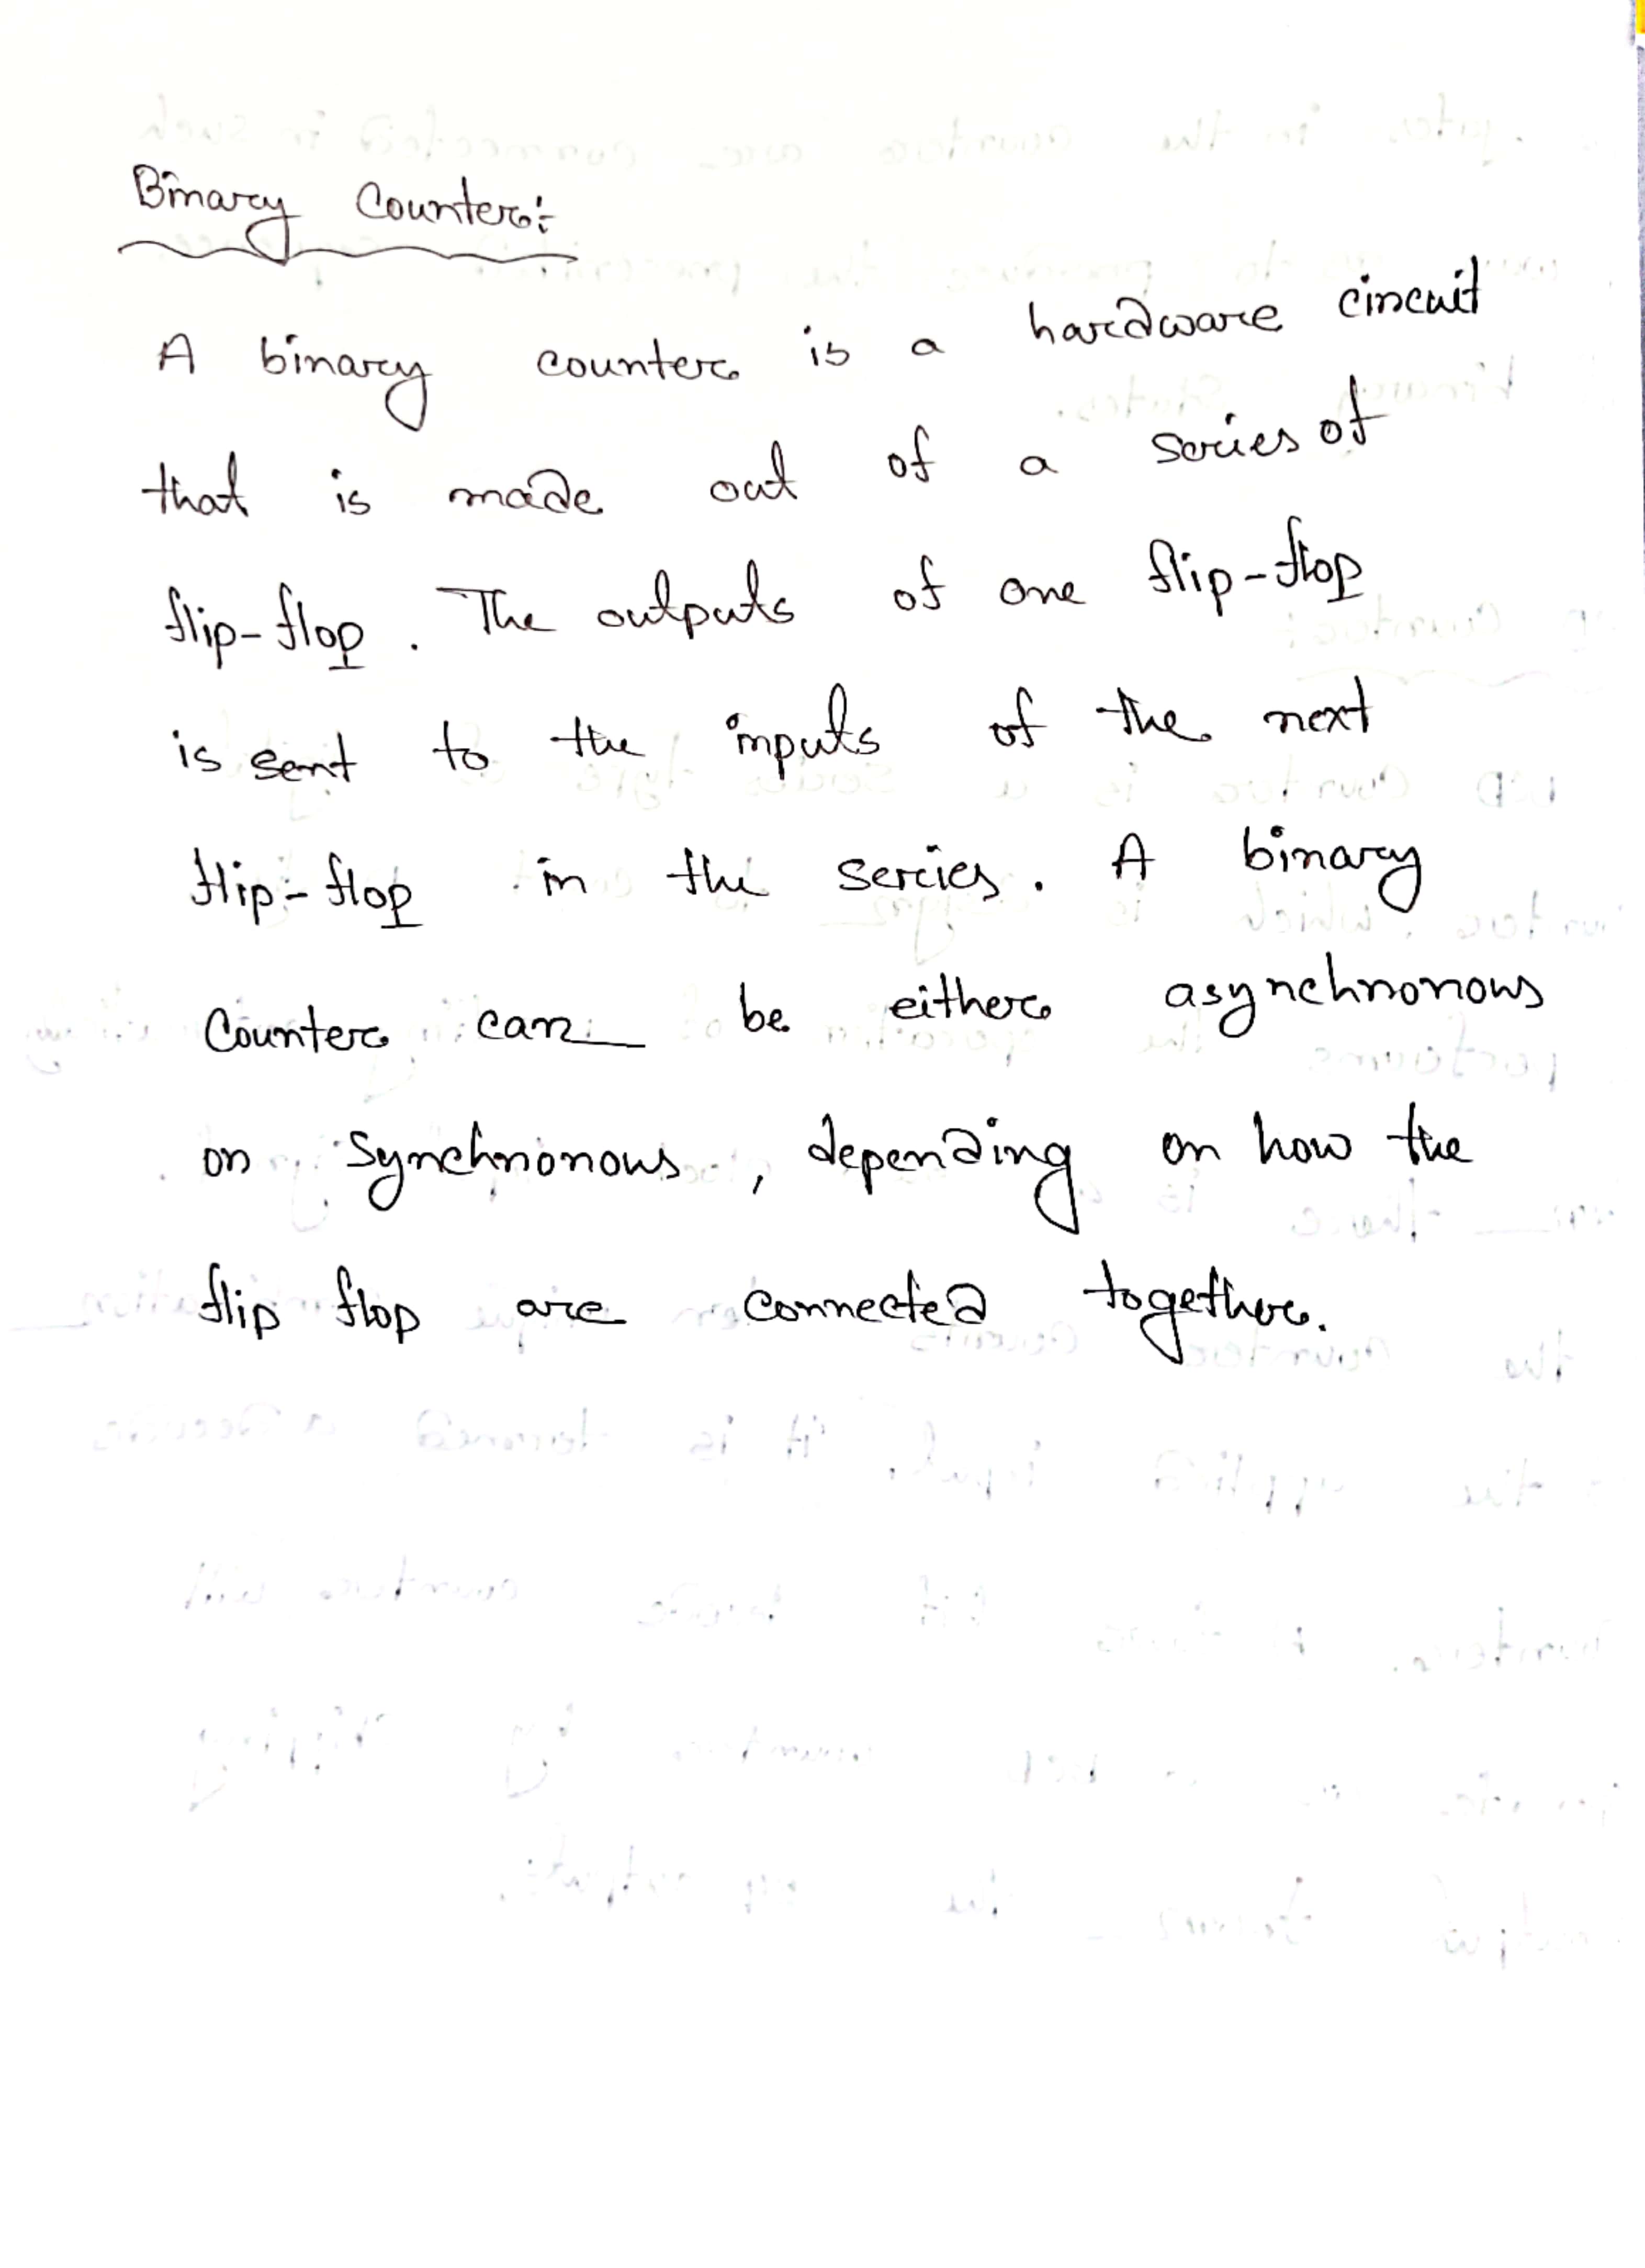 Binary Counter:
A binary counter is a hardware circuit
that is made out of a series of
flip-flop. The outputs of one flip-flop
is sent to the inputs of the next
flip-flop in the series. A binary
Counter can be either asynchronous
or synchronous, depending on how the
flip flop are connected together.